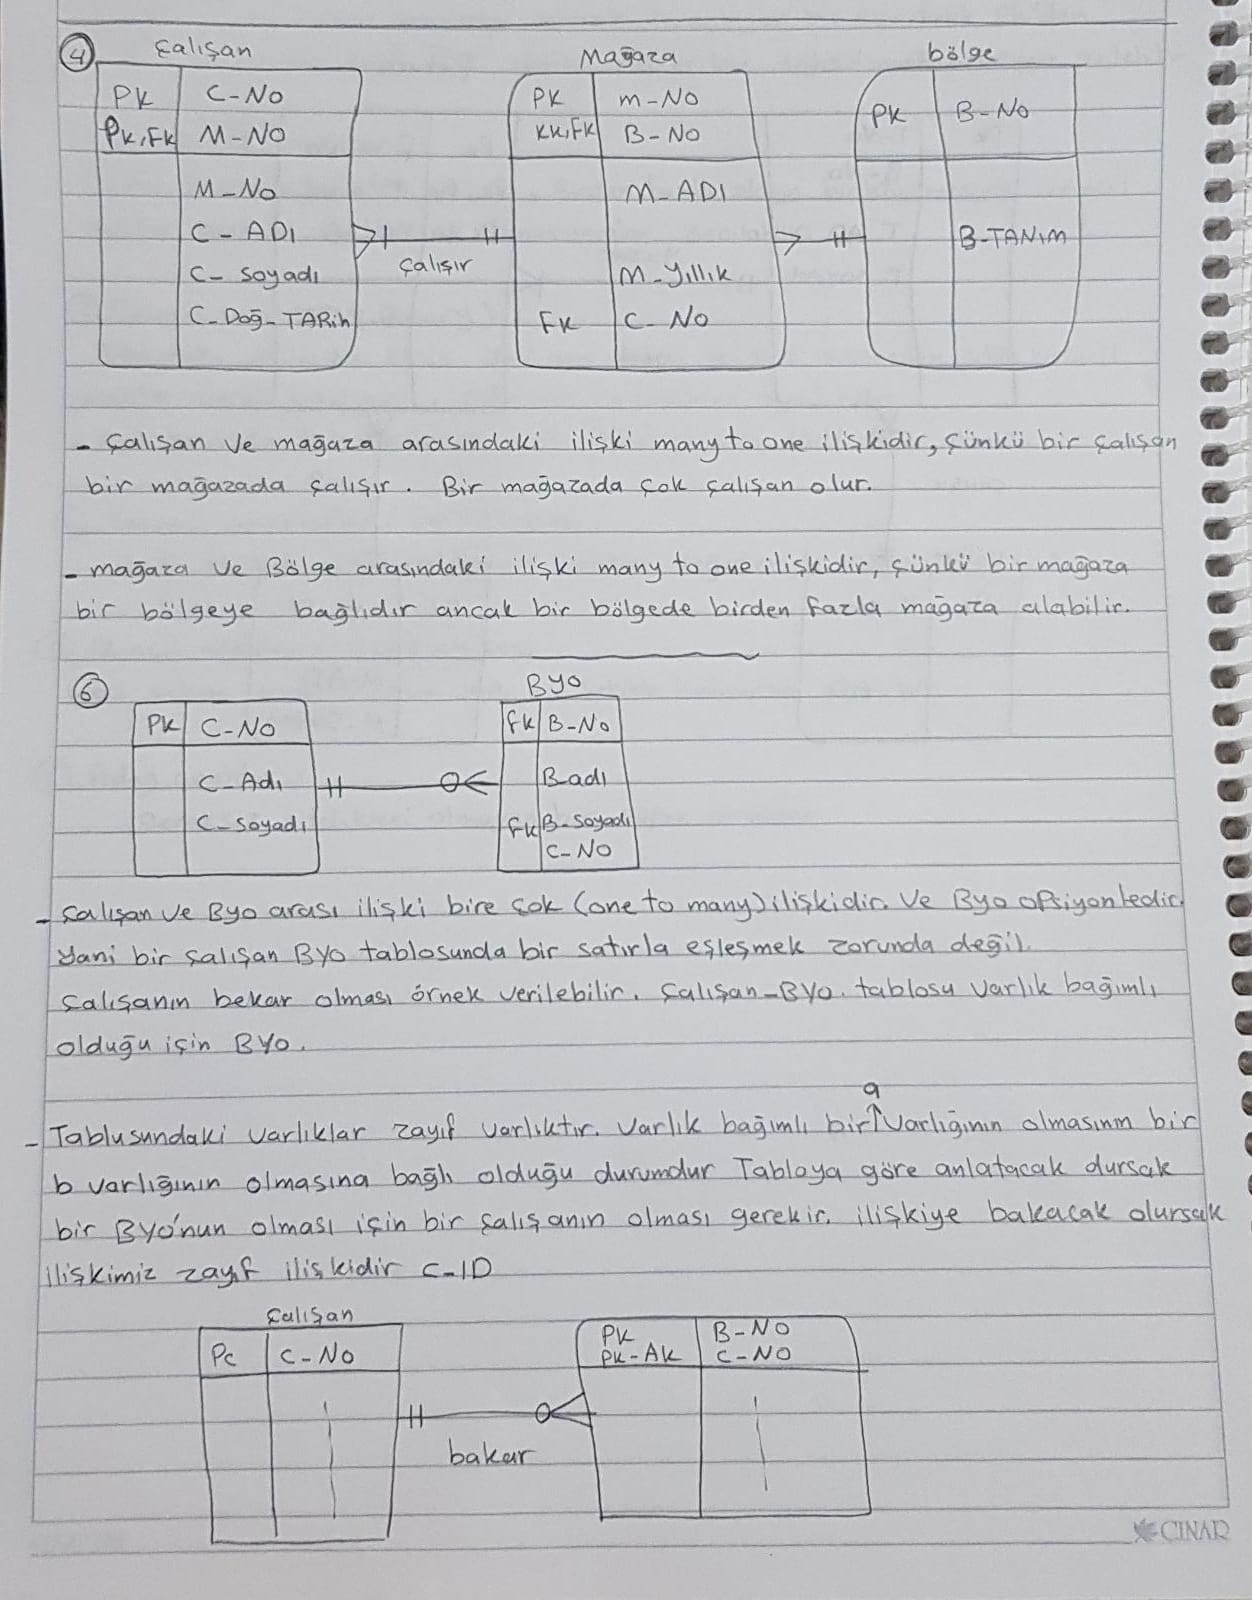 4 Çalışan Mağaza bölge
PK C-NO PK M-NO PK B-NO
PK,FK M-NO KK,FK B-NO
M-NO M-ADI
C-ADI B-TANIM
çalışır
C-soyadı M-yıllık
C-Doğ-TARih FK C-NO
- Çalışan ve mağaza arasındaki ilişki many to one ilişkidir, çünkü bir çalışan
bir mağazada çalışır. Bir mağazada çok çalışan olur.
- mağaza ve Bölge arasındaki ilişki many to one ilişkidir, çünkü bir mağaza
bir bölgeye bağlıdır ancak bir bölgede birden fazla mağaza alabilir.
6 Byo
PK C-NO FK B-No
C-Adı B-adı
C-Soyadı FK B-Soyadı
C-NO
- Çalışan ve Byo arası ilişki bire çok (one to many) ilişkidir. Ve Byo
Yani bir çalışan BYO tablosunda bir satırla eşleşmek zorunda değil.
Çalışanın bekar olması örnek verilebilir. Çalışan-BYO. tablosu varlık bağımlı
olduğu için BYO.
a
- Tablusundaki varlıklar zayıf varlıktır. Varlık bağımlı bir varlığının olmasının bir
b varlığının olmasına bağlı olduğu durumdur Tabloya göre anlatacak dursak
bir BYO'nun olması için bir çalışanın olması gerekir. ilişkiye bakacak olursak
ilişkimiz zayıf ilişkidir C-ID
Çalışan
Pc C-NO PK B-NO
PK-AK C-NO
bakar
CINAR